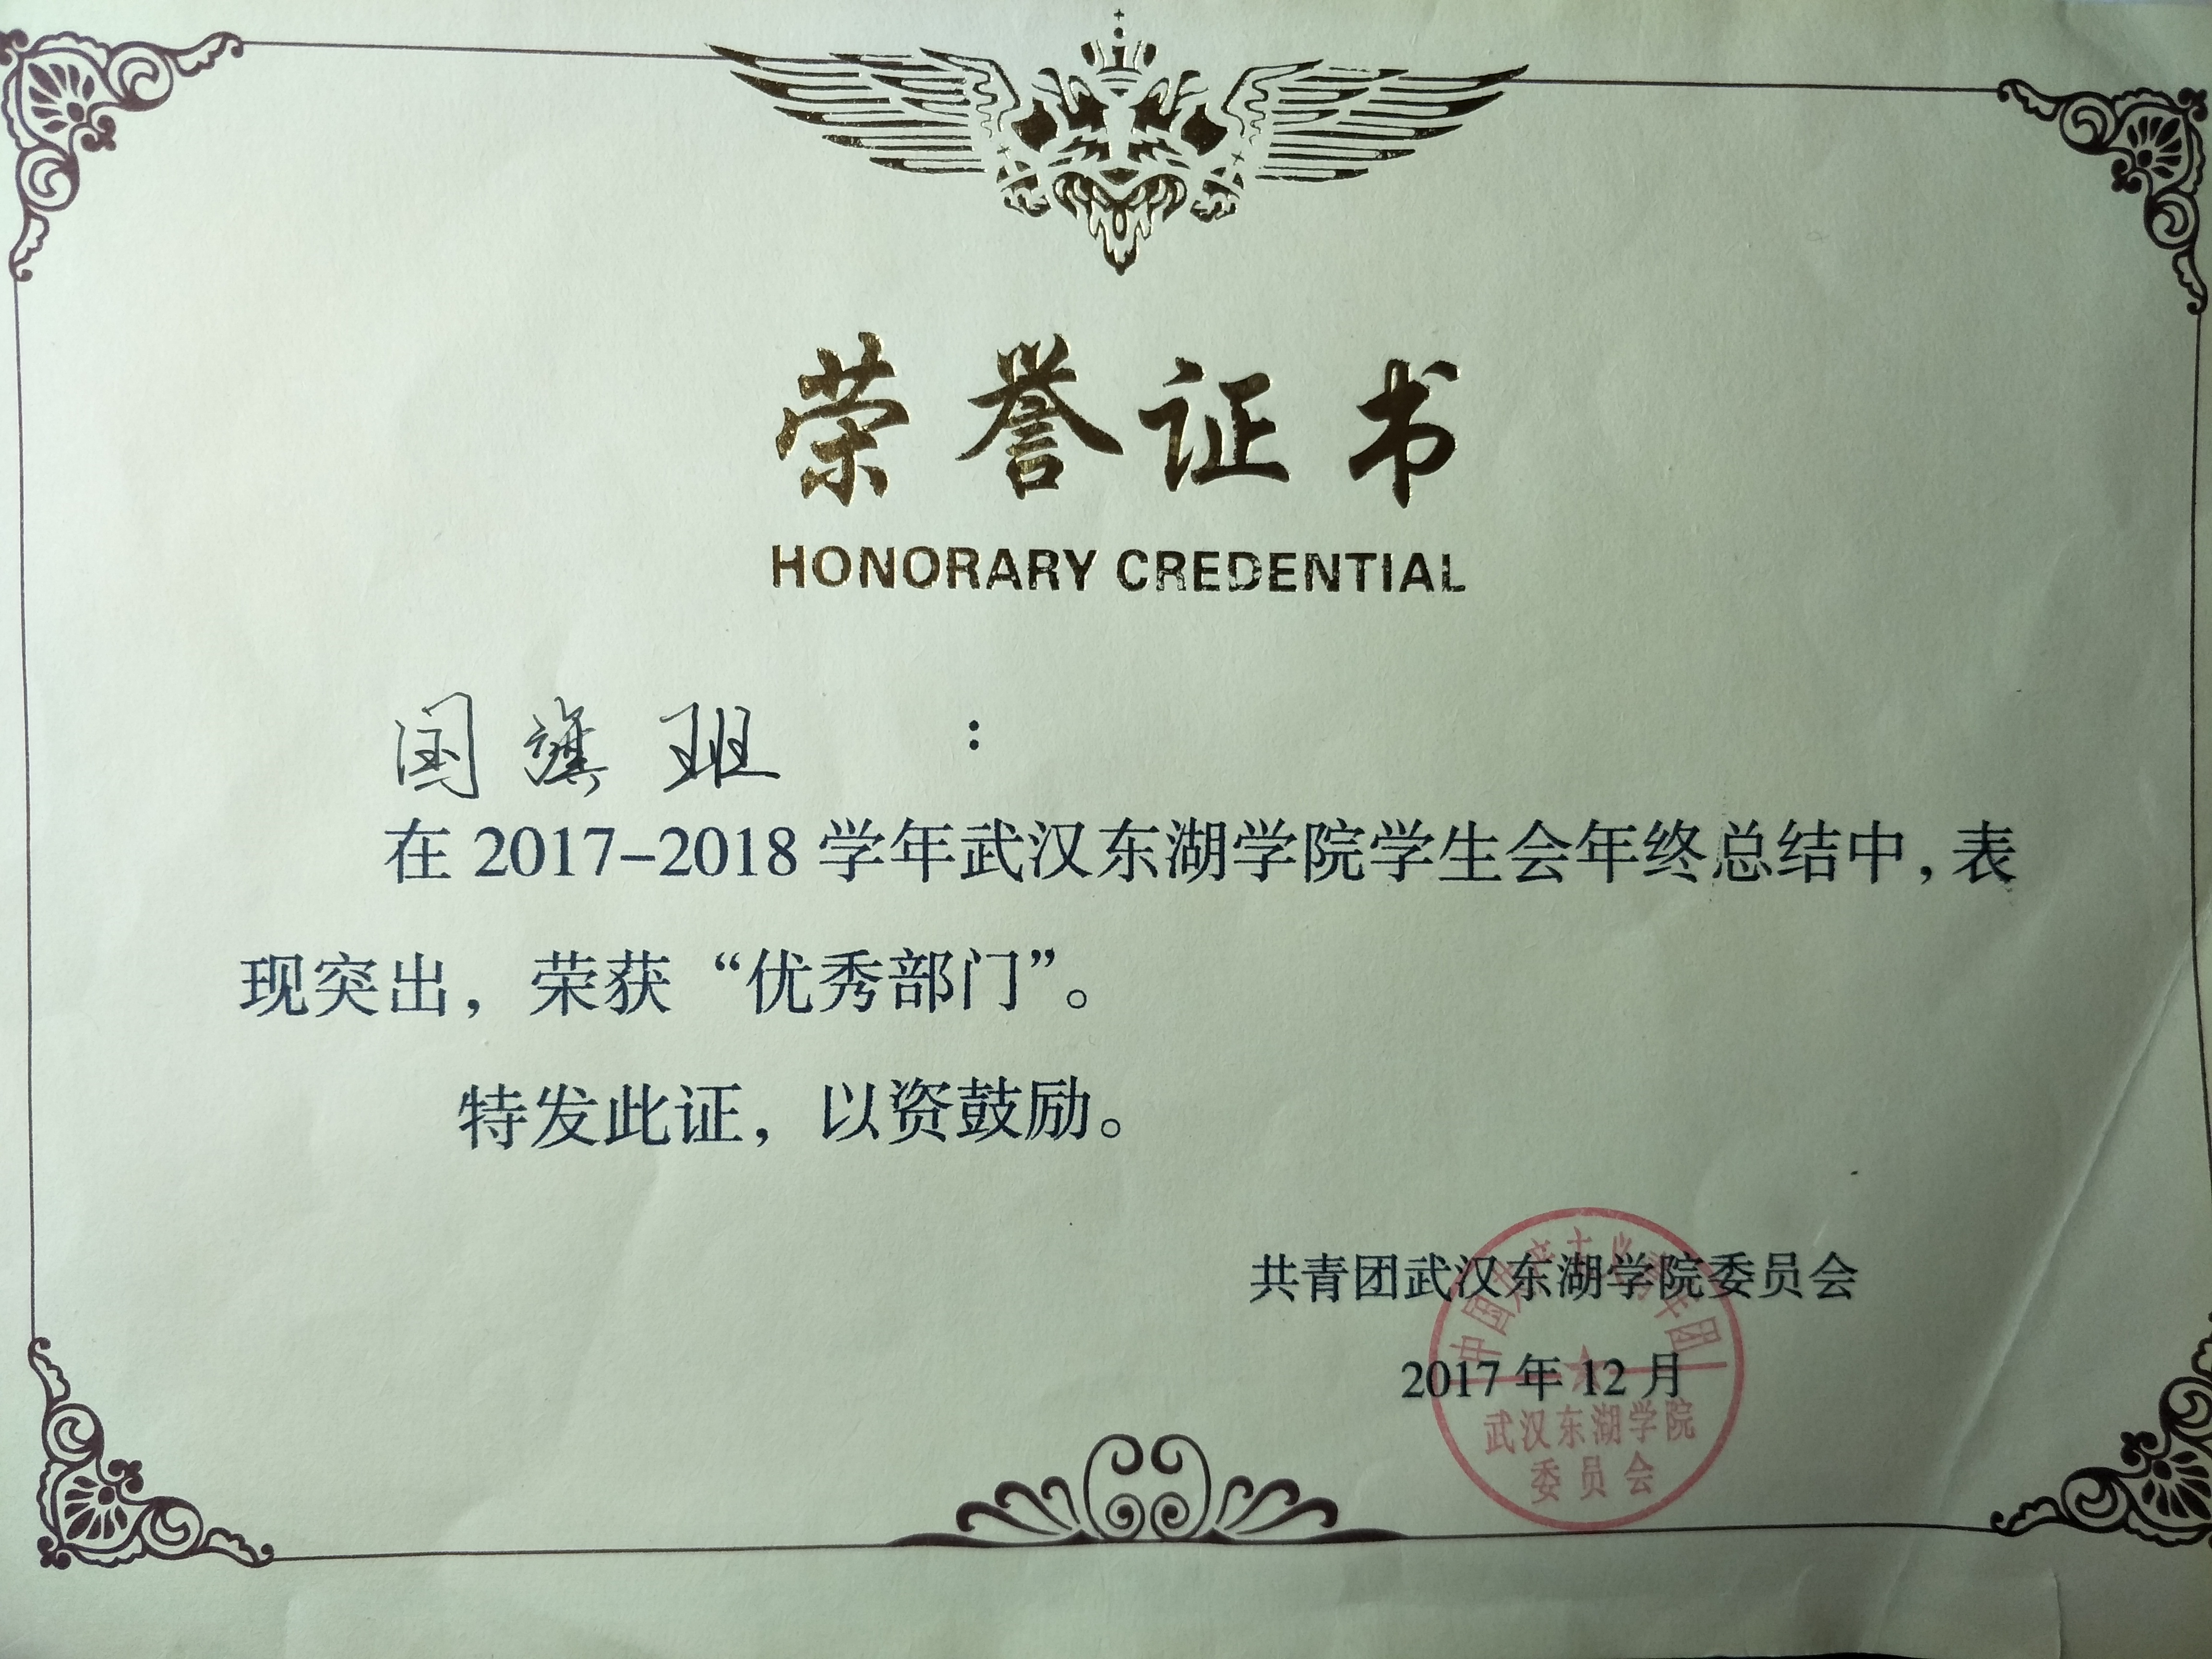 荣誉证书
HONORARY CREDENTIAL
国旗班 :
在 2017-2018 学年武汉东湖学院学生会年终总结中,表
现突出，荣获“优秀部门”。
特发此证，以资鼓励。
共青团武汉东湖学院委员会
2017 年 12 月
中国共产主义青年团
武汉东湖学院
委员会